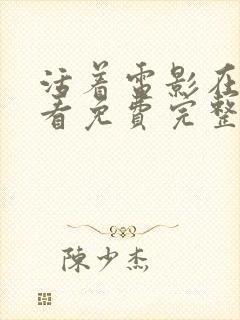 活着雷影在
看免费完整
陳少杰